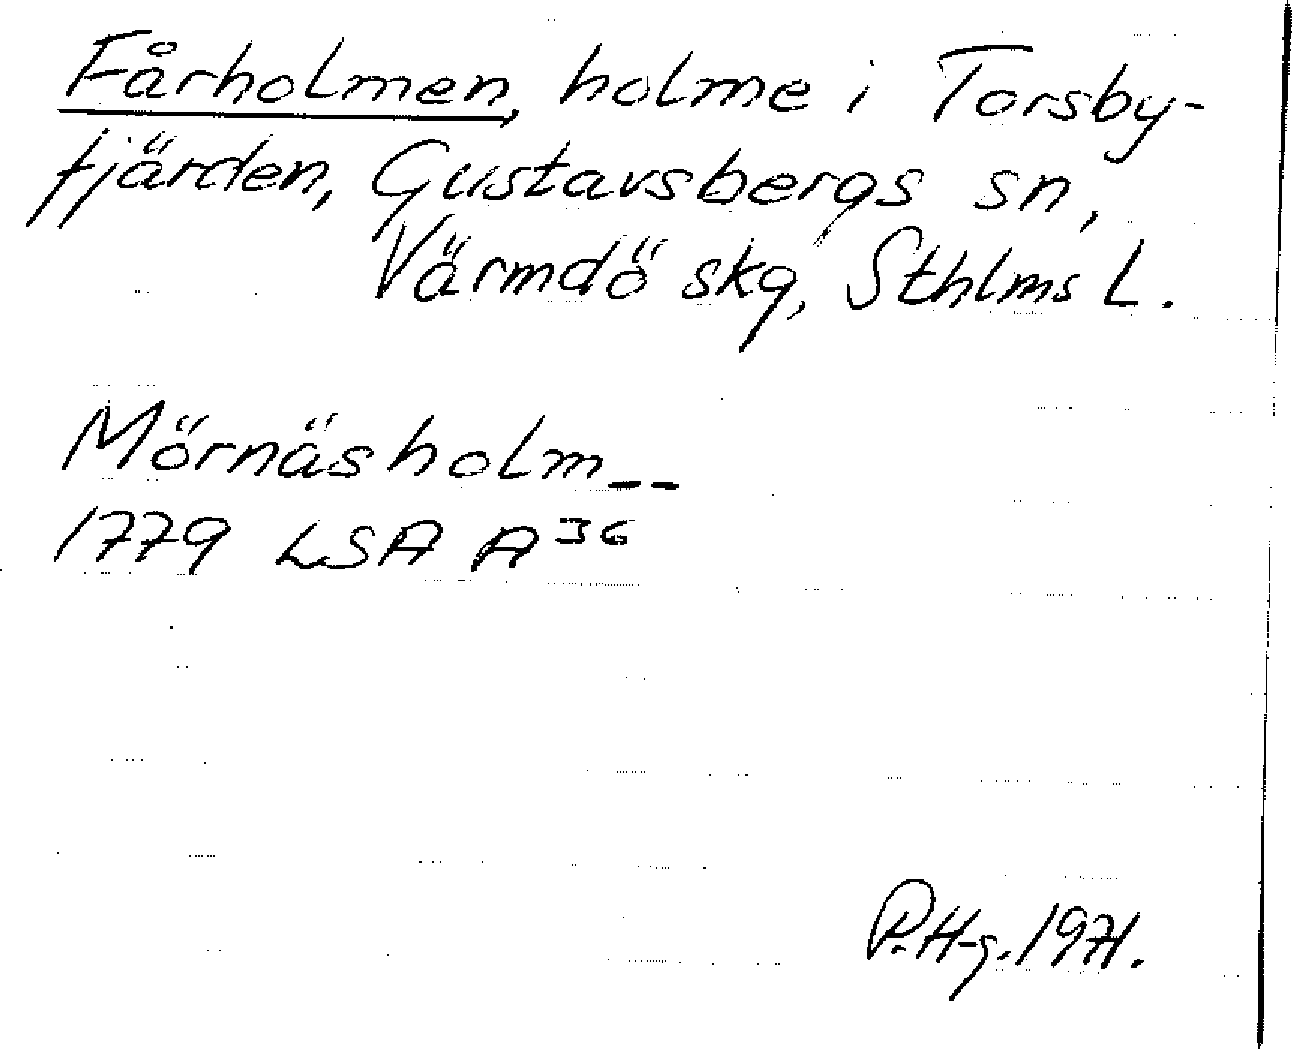 Fårholmen, holme i Torsby-
fjärden, Gustavsbergs sn,
Värmdö skg, Sthlms L.
Mörnäsholm--
1779 LSA A 36
P. H-g. 1971.